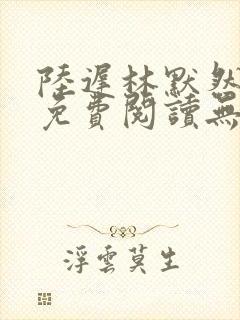 陸遲林默然
免費閱讀無
浮雲莫生